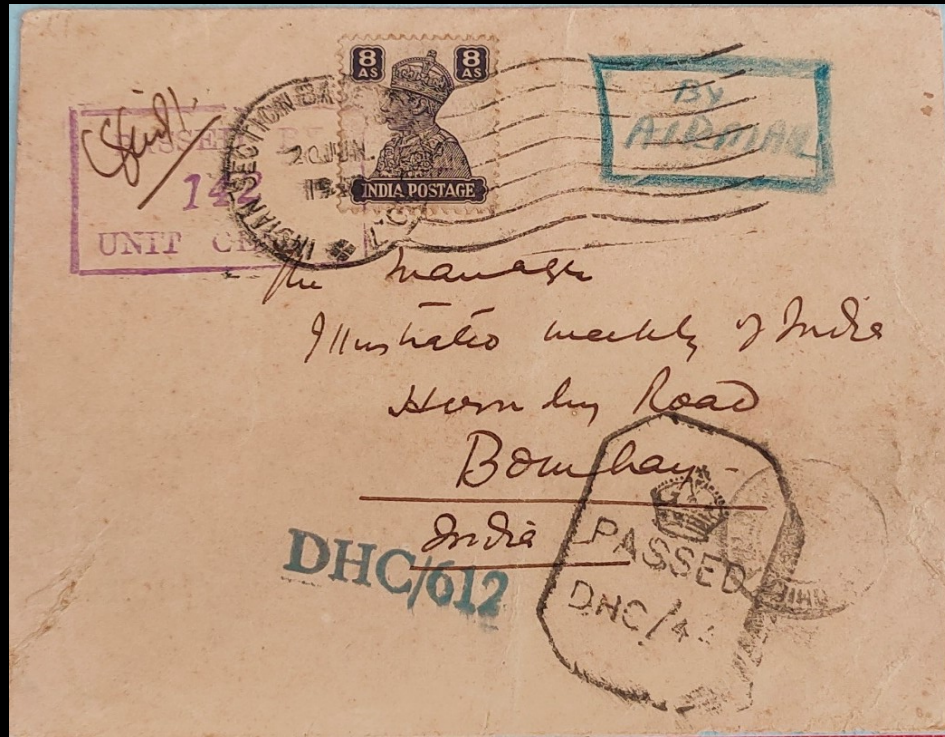 8 AS 8 AS
INDIA POSTAGE
INDIAN SECTION BA
20 JUN.
BY
AIRMAIL
142
UNIT CE
The Manager
Illustrated weekly of India
Hornby Road
Bombay
India
DHC/612
PASSED
DHC/4